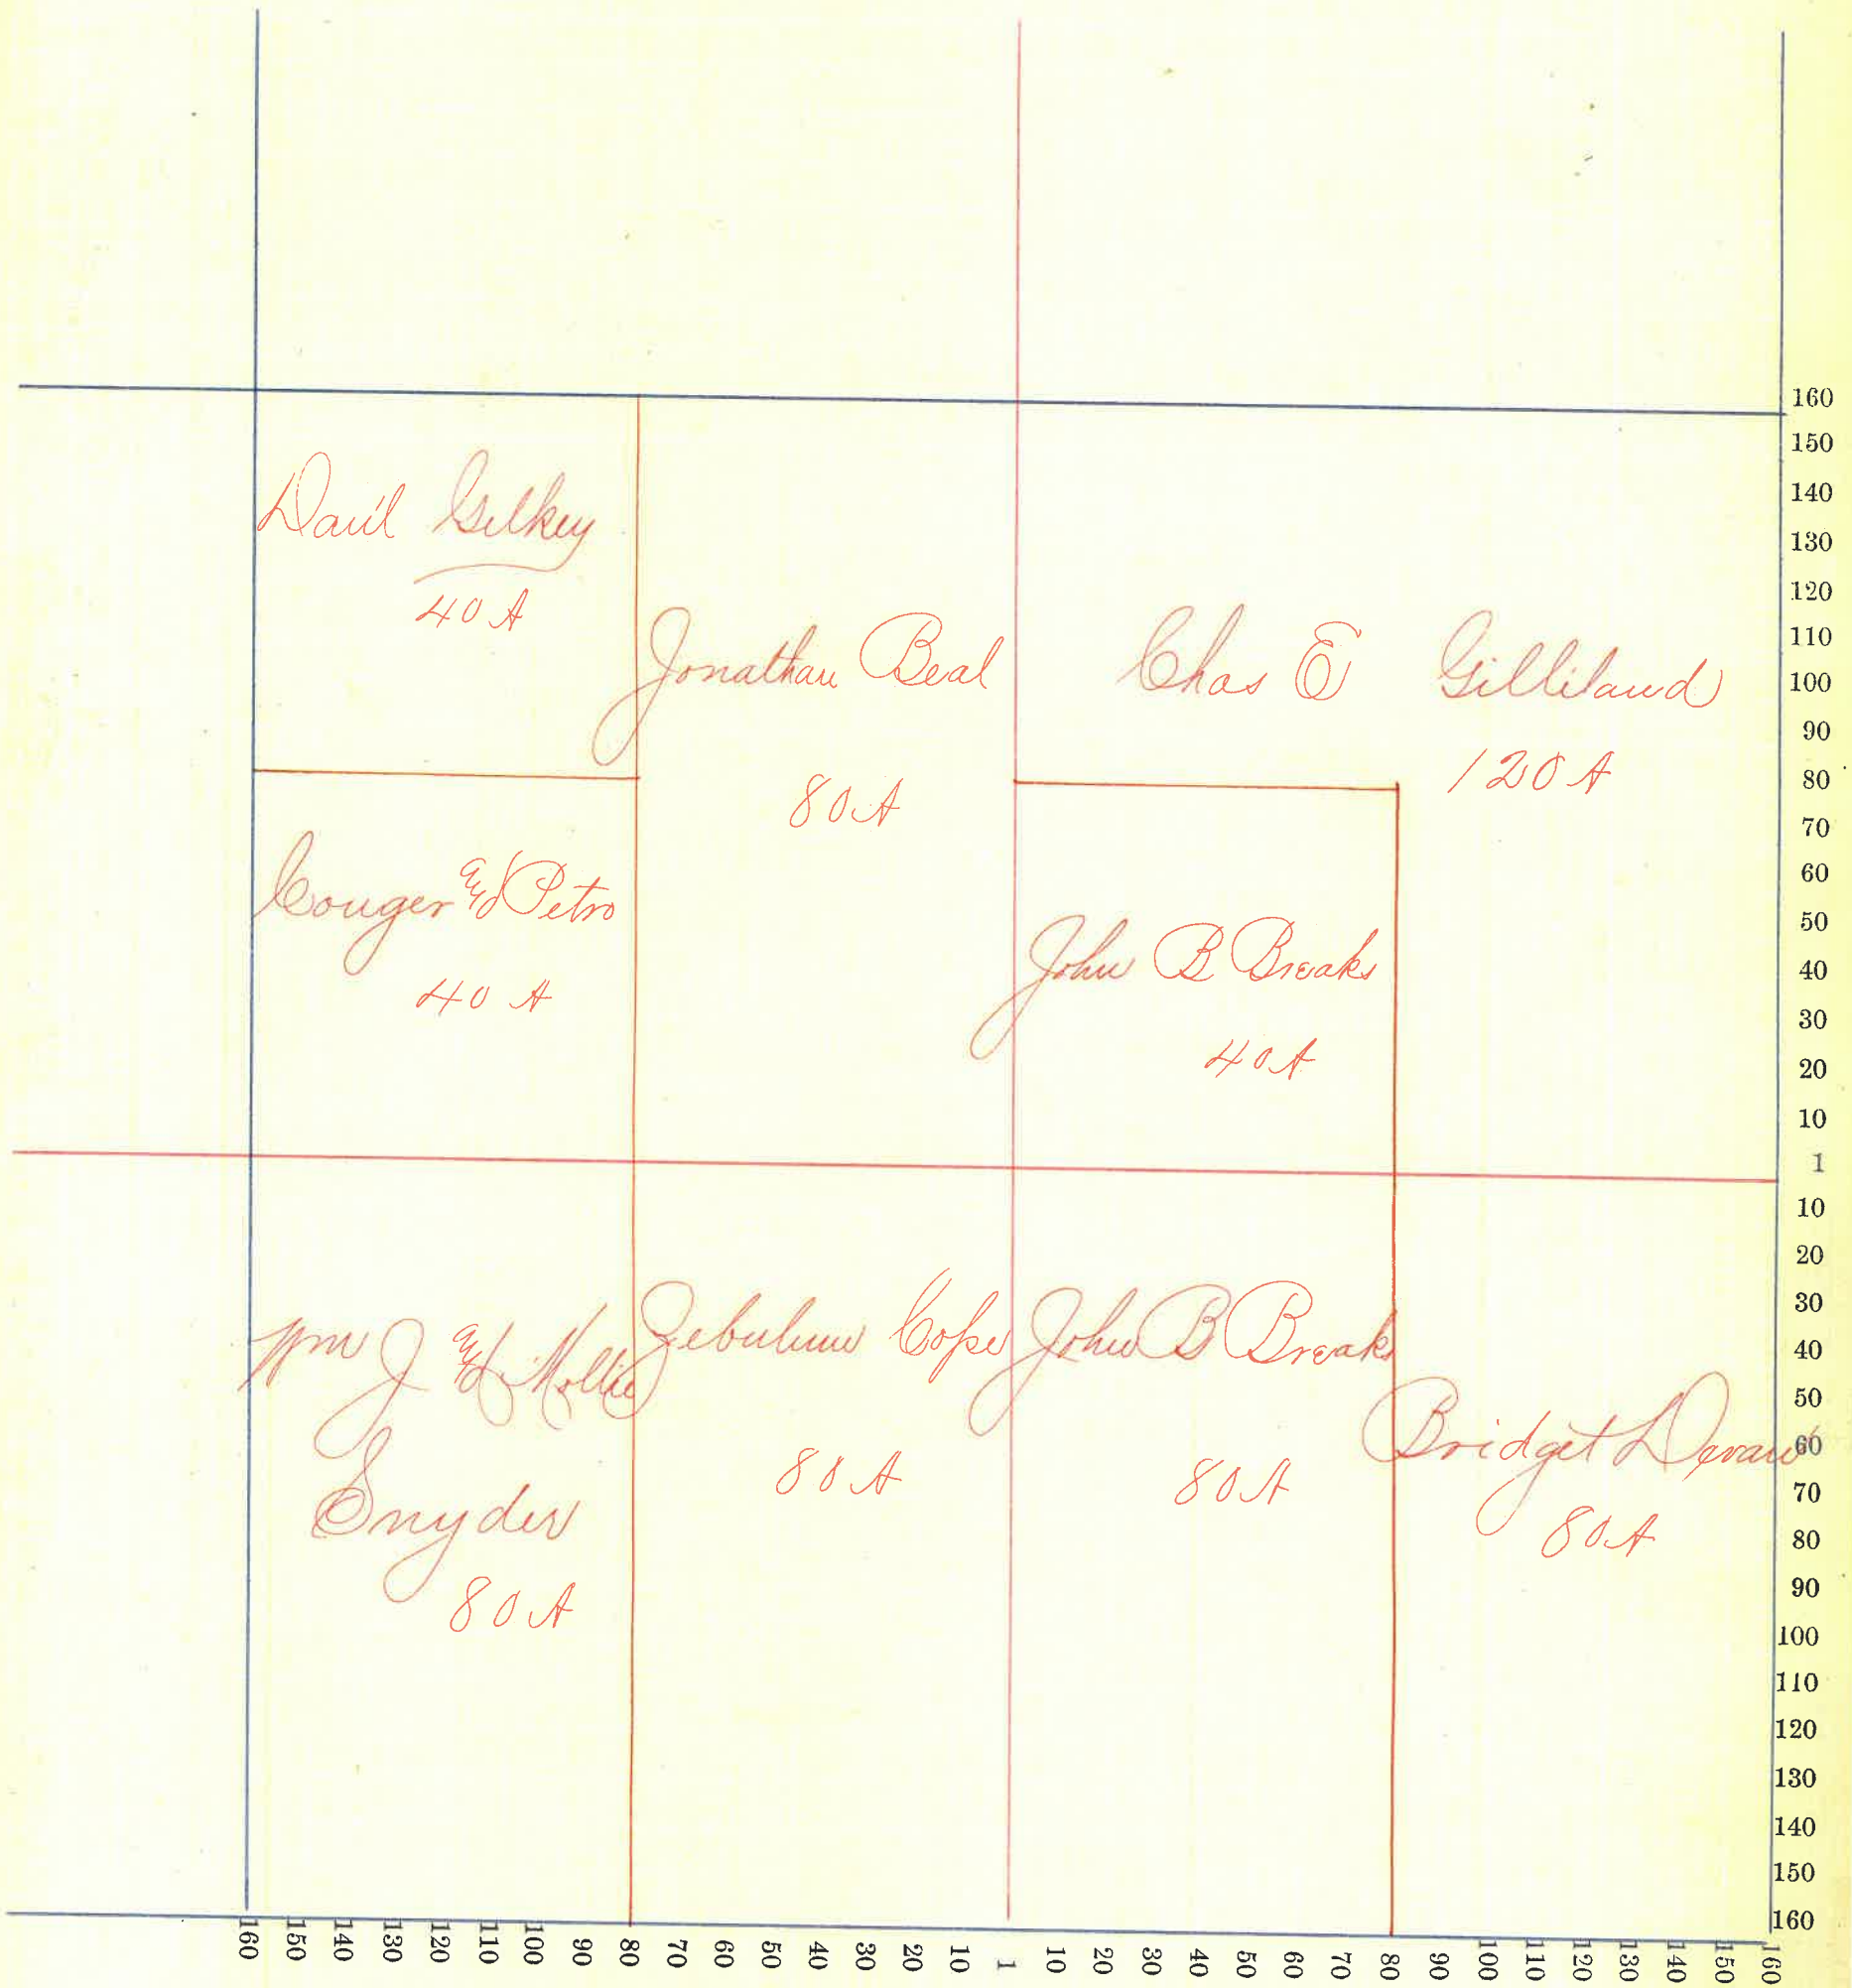 Dan'l Gilkey
40 A
Jonathan Beal
80 A
Chas E Gilliland
120 A
Couger and Petro
40 A
John B Breaks
40 A
Wm J and Mollie
Snyder
80 A
Zebulun Cope
80 A
John B Breaks
80 A
Bridget Devan
80 A
160
150
140
130
120
110
100
90
80
70
60
50
40
30
20
10
1
10
20
30
40
50
60
70
80
90
100
110
120
130
140
150
160
160 150 140 130 120 110 100 90 80 70 60 50 40 30 20 10 1 10 20 30 40 50 60 70 80 90 100 110 120 130 140 150 160